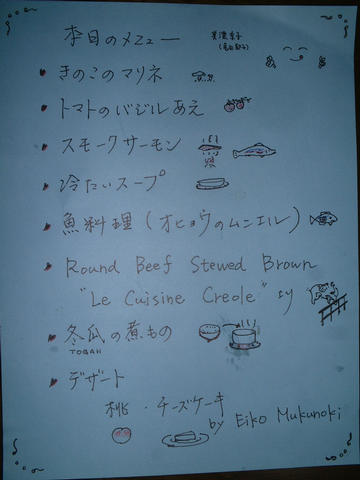 本日のメニュー
きのこのマリネ
トマトのバジルあえ
スモークサーモン
冷たいスープ
魚料理（オヒョウのムニエル）
Round Beef Stewed Brown
"Le Cuisine Creole"
冬瓜の煮もの
TOGAN
デザート
桃・チーズケーキ
by Eiko Mukunoki